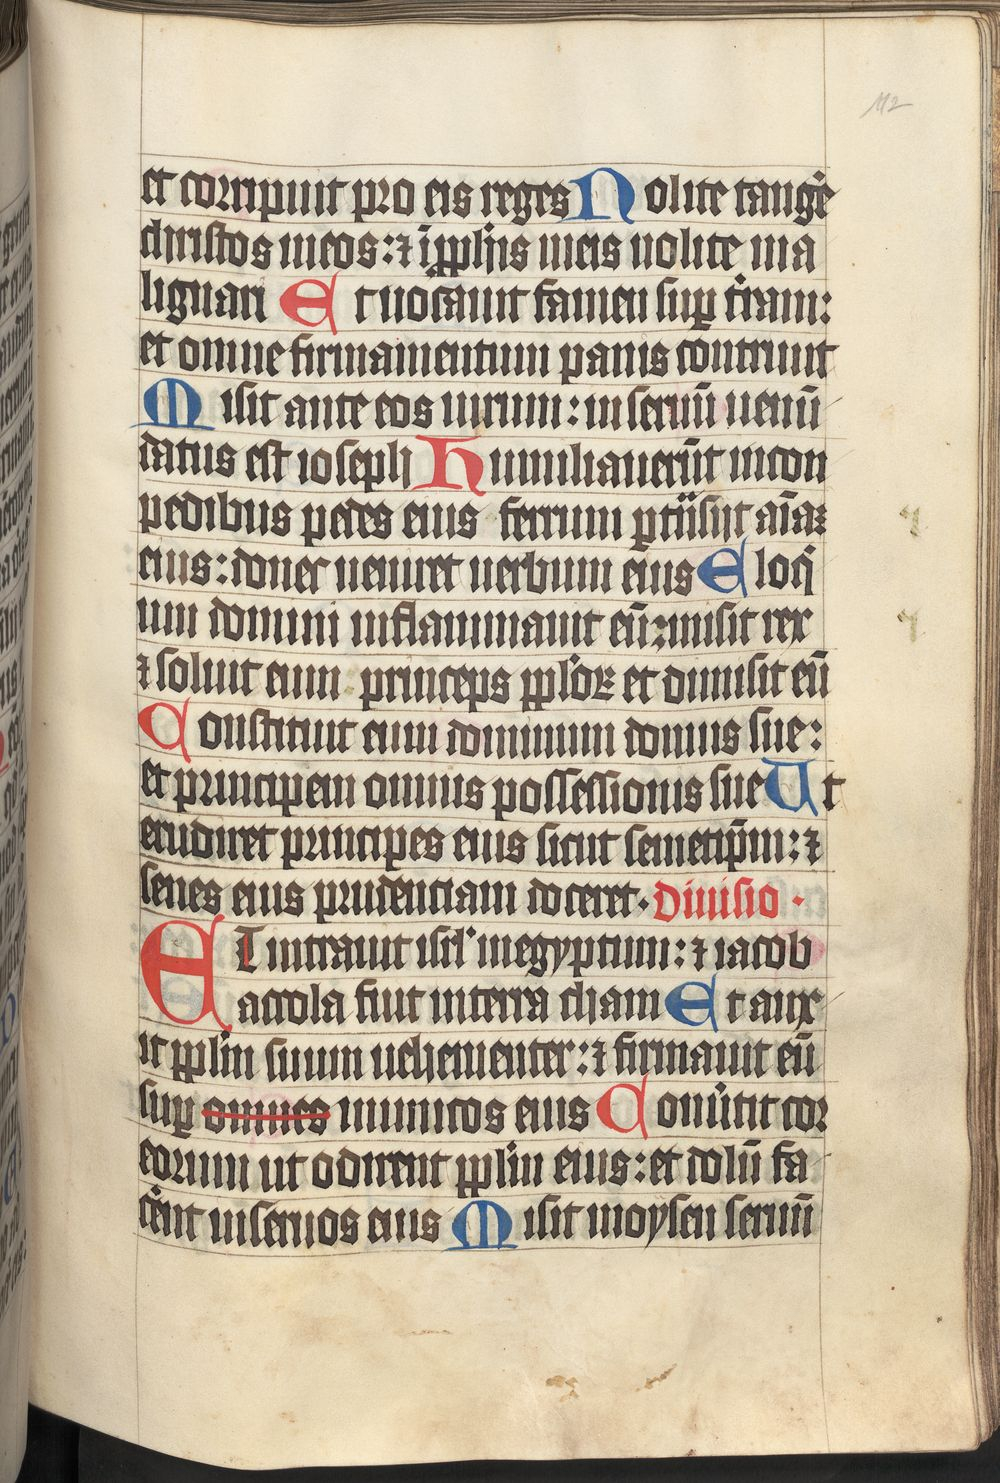 112
et corripuit pro eis reges Nolite tangẽ
christos meos: ⁊ ĩ ꝓphis meis nolite ma
lignari Et uocauit famen suꝑ terram:
et omne firmamentum panis contriuit
Misit ante eos uirum: in seruũ uenũ
datus est ioseph Humiliauerũt in con
pedibus pedes eius ferrum ꝑtñsijt aĩaꝫ
eius: donec ueniret uerbum eius Eloq̃
ium domini inflammauit eũ: misit rex
⁊ soluit eum princeps ppl'oꝝ et dimisit eũ
Constituit eum dominum domus sue:
et principem omnis possessionis sue Ut
erudiret principes eius sicut semetip̃m: ⁊
senes eius prudentiam doceret. diuisio.
ET intrauit isrl' in egyptum: ⁊ iacob
accola fuit in terra cham Et aux
it ppl'm suum uehementer: ⁊ firmauit eũ
suꝑ omnes inimicos eius Conũtit cor
eorum ut odirent ppl'm eius: et dolũ fa
cẽnt in seruos eius Misit moysen seruũ